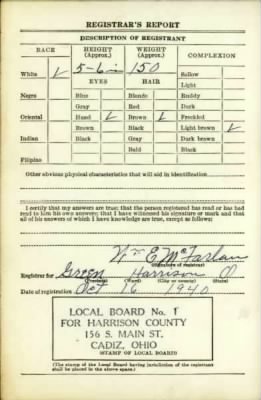 REGISTRAR'S REPORT
DESCRIPTION OF REGISTRANT
RACE HEIGHT (Approx.) WEIGHT (Approx.) COMPLEXION
5-6 150 Sallow
White ✓ EYES HAIR Light
Negro Blue Blonde Ruddy
Gray Red Dark
Oriental Hazel ✓ Brown ✓ Freckled
Brown Black Light brown ✓
Indian Black Gray Dark brown
Bald Black
Filipino
Other obvious physical characteristics that will aid in identification
I certify that my answers are true; that the person registered has read or has had
read to him his own answers; that I have witnessed his signature or mark and that
all of his answers of which I have knowledge are true, except as follows:
Wm E McFarlan
(Signature of registrar)
Registrar for Green Harrison O
(Precinct) (Ward) (City or county) (State)
Date of registration Oct 16 1940
LOCAL BOARD No. 1
FOR HARRISON COUNTY
156 S. MAIN ST.
CADIZ, OHIO
(STAMP OF LOCAL BOARD)
(The stamp of the Local Board having jurisdiction of the registrant
shall be placed in the above space.)